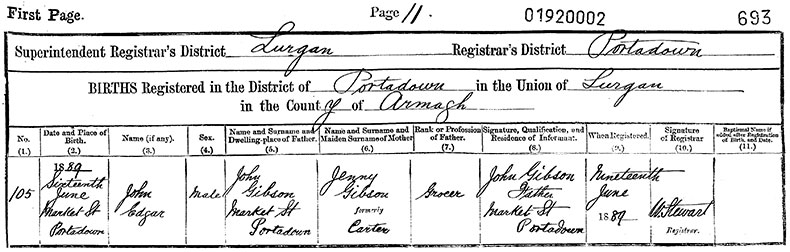 First Page. Page 11. 01920002 693
Superintendent Registrar's District Lurgan Registrar's District Portadown
BIRTHS Registered in the District of Portadown in the Union of Lurgan
in the County of Armagh
No. (1.)
Date and Place of Birth. (2.)
Name (if any). (3.)
Sex. (4.)
Name and Surname and Dwelling-place of Father. (5.)
Name and Surname and Maiden Surname of Mother (6.)
Rank or Profession of Father. (7.)
Signature, Qualification, and Residence of Informant. (8.)
When Registered. (9.)
Signature of Registrar (10.)
Baptismal Name if added after Registration of Birth, and Date. (11.)
105
1889
Sixteenth
June
Market St
Portadown
John
Edgar
Male
John
Gibson
Market St
Portadown
Jenny
Gibson
formerly
Carter
Grocer
John Gibson
Father
Market St
Portadown
Nineteenth
June
1889
W Stewart
Registrar.